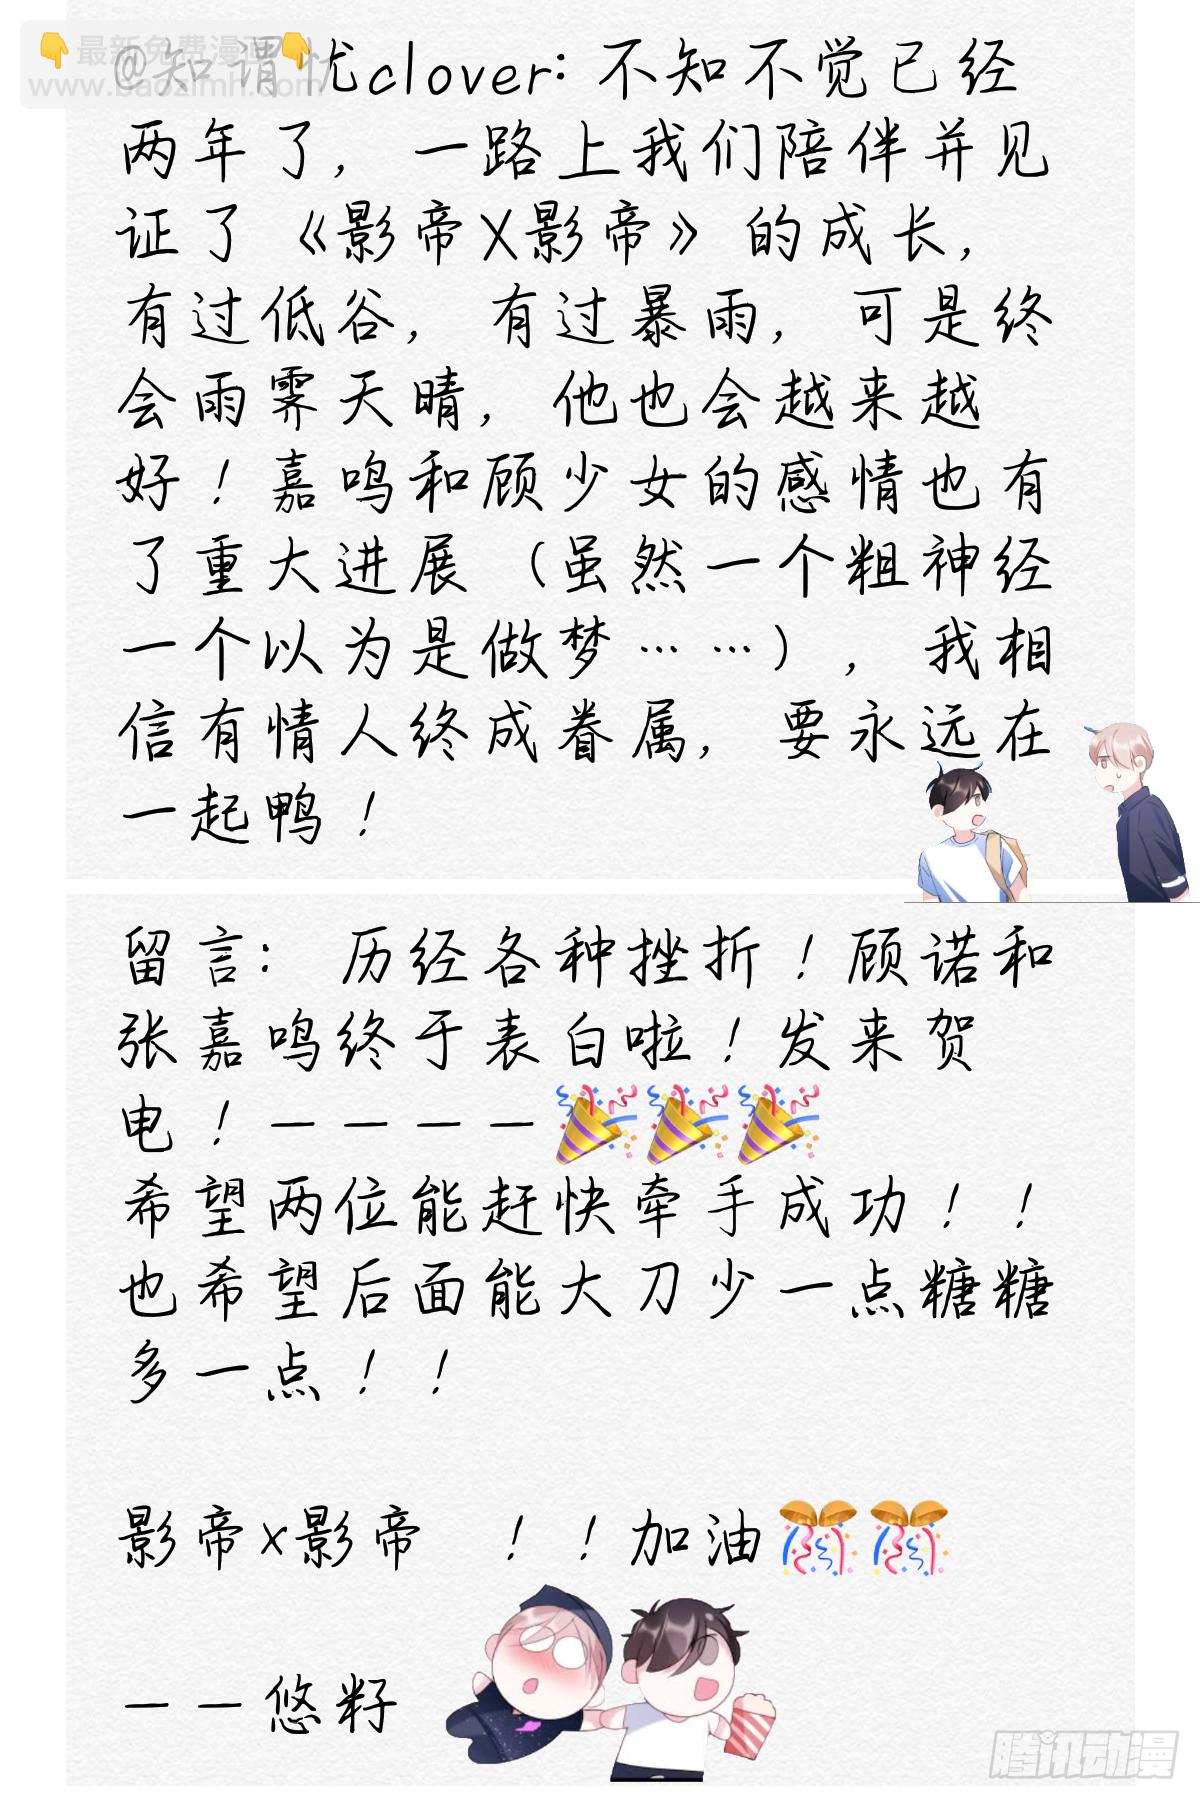 👇最新免费漫画👇
www.baozimh.com
@知谓忧clover: 不知不觉已经
两年了, 一路上我们陪伴并见
证了《影帝X影帝》的成长,
有过低谷, 有过暴雨, 可是终
会雨霁天晴, 他也会越来越
好！嘉鸣和顾少女的感情也有
了重大进展（虽然一个粗神经
一个以为是做梦……）, 我相
信有情人终成眷属, 要永远在
一起鸭！
留言: 历经各种挫折！顾诺和
张嘉鸣终于表白啦！发来贺
电！————🎉🎉🎉
希望两位能赶快牵手成功！！
也希望后面能大刀少一点糖糖
多一点！！
影帝x影帝 ！！加油🎊🎊
——悠籽
腾讯动漫